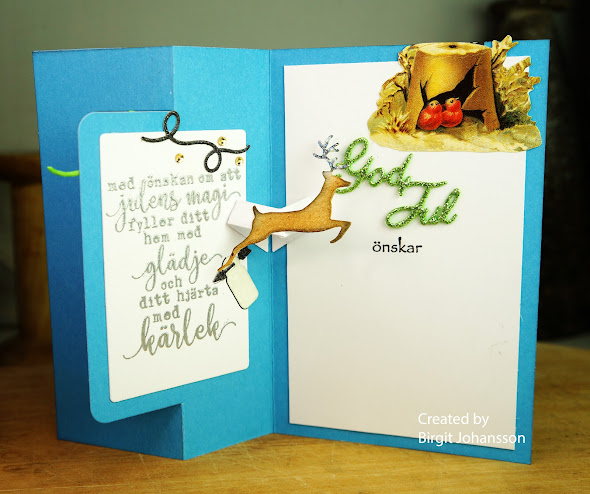 med önskan om att
julens magi
fyller ditt
hem med
glädje
och
ditt hjärta
med
kärlek
God
Jul
önskar
Created by
Birgit Johansson